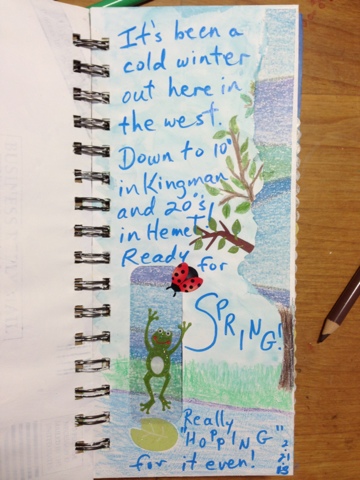 It's been a
cold winter
out here in
the west.
Down to 10°
in Kingman
and 20°s,
in Hemet!
Ready for
SPRING!
Really
"HOPPING"
for it even!